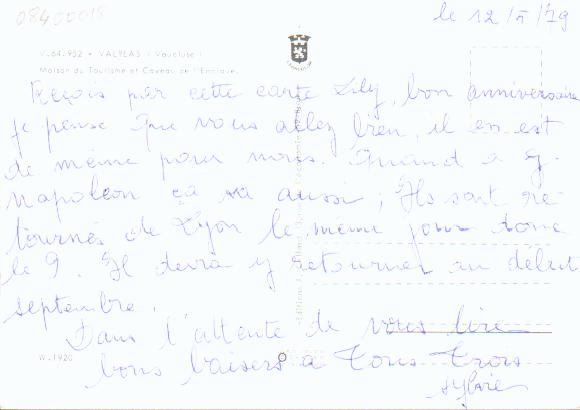 08400018
le 12/5/79
V.64.952 - VALREAS (Vaucluse)
Maison du Tourisme et Caveau de l'Enclave.
Reçois par cette carte Lily, bon anniversaire
je pense que vous allez bien, il en est
de même pour nous. Quand à G.
Napoléon ça va aussi ; Ils sont re-
tournés de Lyon le même jour donc
le 9. Il devra y retourner au début
septembre.
Dans l'attente de vous lire
W.1920
bons baisers à tous trois
Sylvie